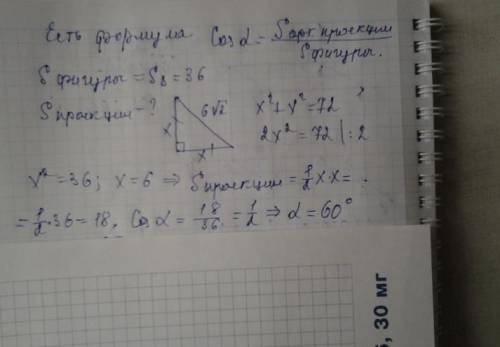 Есть формула Cos α = S орт проекции / S фигуры.
S фигуры = S₈ = 36
S проекции - ?
6√2
x² + x² = 72
x
2x² = 72 | : 2
x
x² = 36; x = 6 ⇒ S проекции = 1/2 x · x =
= 1/2 · 36 = 18. Cos α = 18/36 = 1/2 ⇒ α = 60°
30 мг